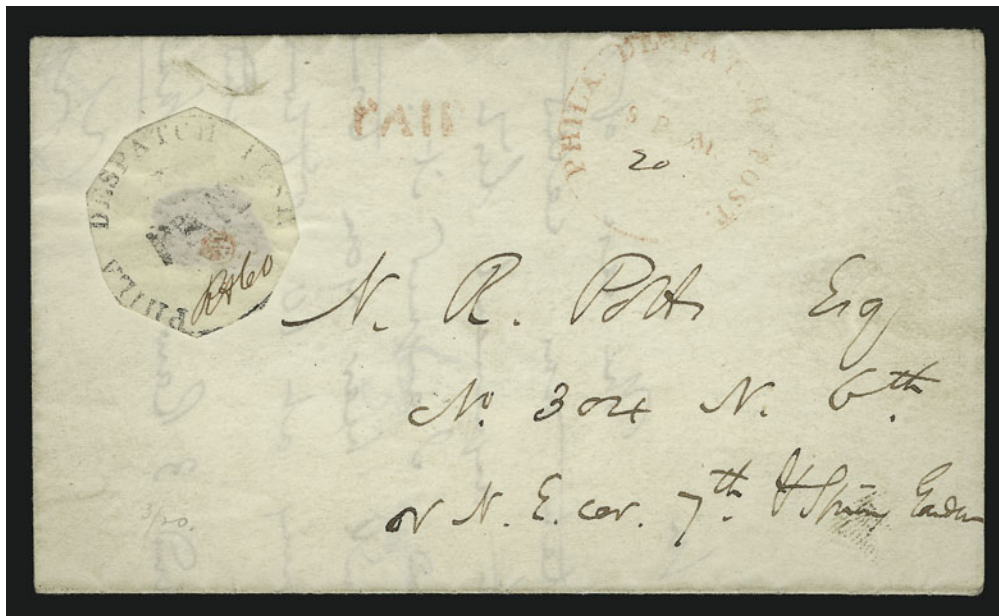 PHILA DESPATCH POST
R & Co
PAID
PHILA. DESPATCH POST.
5 P. M.
20
N. R. Potts Esq
No. 304 N. 6th.
or N. E. cor. 7th. & Spring Garden